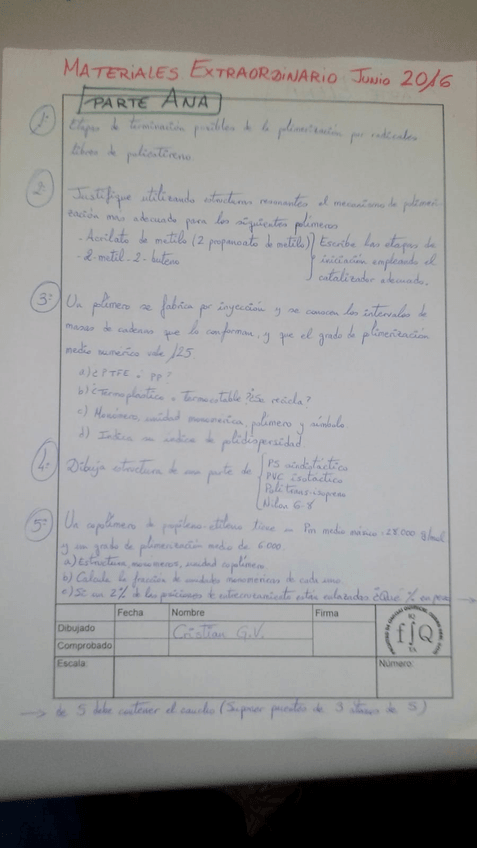 MATERIALES EXTRAORDINARIO JUNIO 2016
PARTE ANA
1= Etapas de terminación posibles de la polimerización por radicales
libres de poliestireno.
2= Justifique utilizando estructuras resonantes el mecanismo de polimeri-
zación mas adecuado para los siguientes polimeros
- Acrilato de metilo (2 propanoato de metilo) } Escriba las etapas de
- 2-metil-2-buteno } iniciación empleando el
catalizador adecuado.
3= Un polímero se fabrica por inyección y se conocen los intervalos de
masas de cadenas que lo conforman, y que el grado de polimerización
medio numérico vale 125
a) ¿PTFE o PP?
b) ¿Termoplastico o termoestable? ¿Se recicla?
c) Monómero, unidad monomérica, polímero y símbolo
d) Indica su índice de polidispersidad.
4= Dibuja estructura de una parte de { PS sindiotáctico
PVC isotáctico
Politrans-isopreno
Nilon 6-8
5= Un copolímero de propileno-etileno tiene un Pm medio másico: 28.000 g/mol
y un grado de polimerización medio de 6000.
a) Estructura, monomeros, unidad copolímero.
b) Calcula la fracción de unidades monomericas de cada uno.
c) Si un 2% de las posiciones de entrecruzamiento están enlazadas ¿Qué % en peso →
Fecha Nombre Firma
Dibujado Cristian G.V.
Comprobado
Escala: Número:
f∫Q
→ de S debe contener el caucho (Suponer puentes de 3 átomos de S)